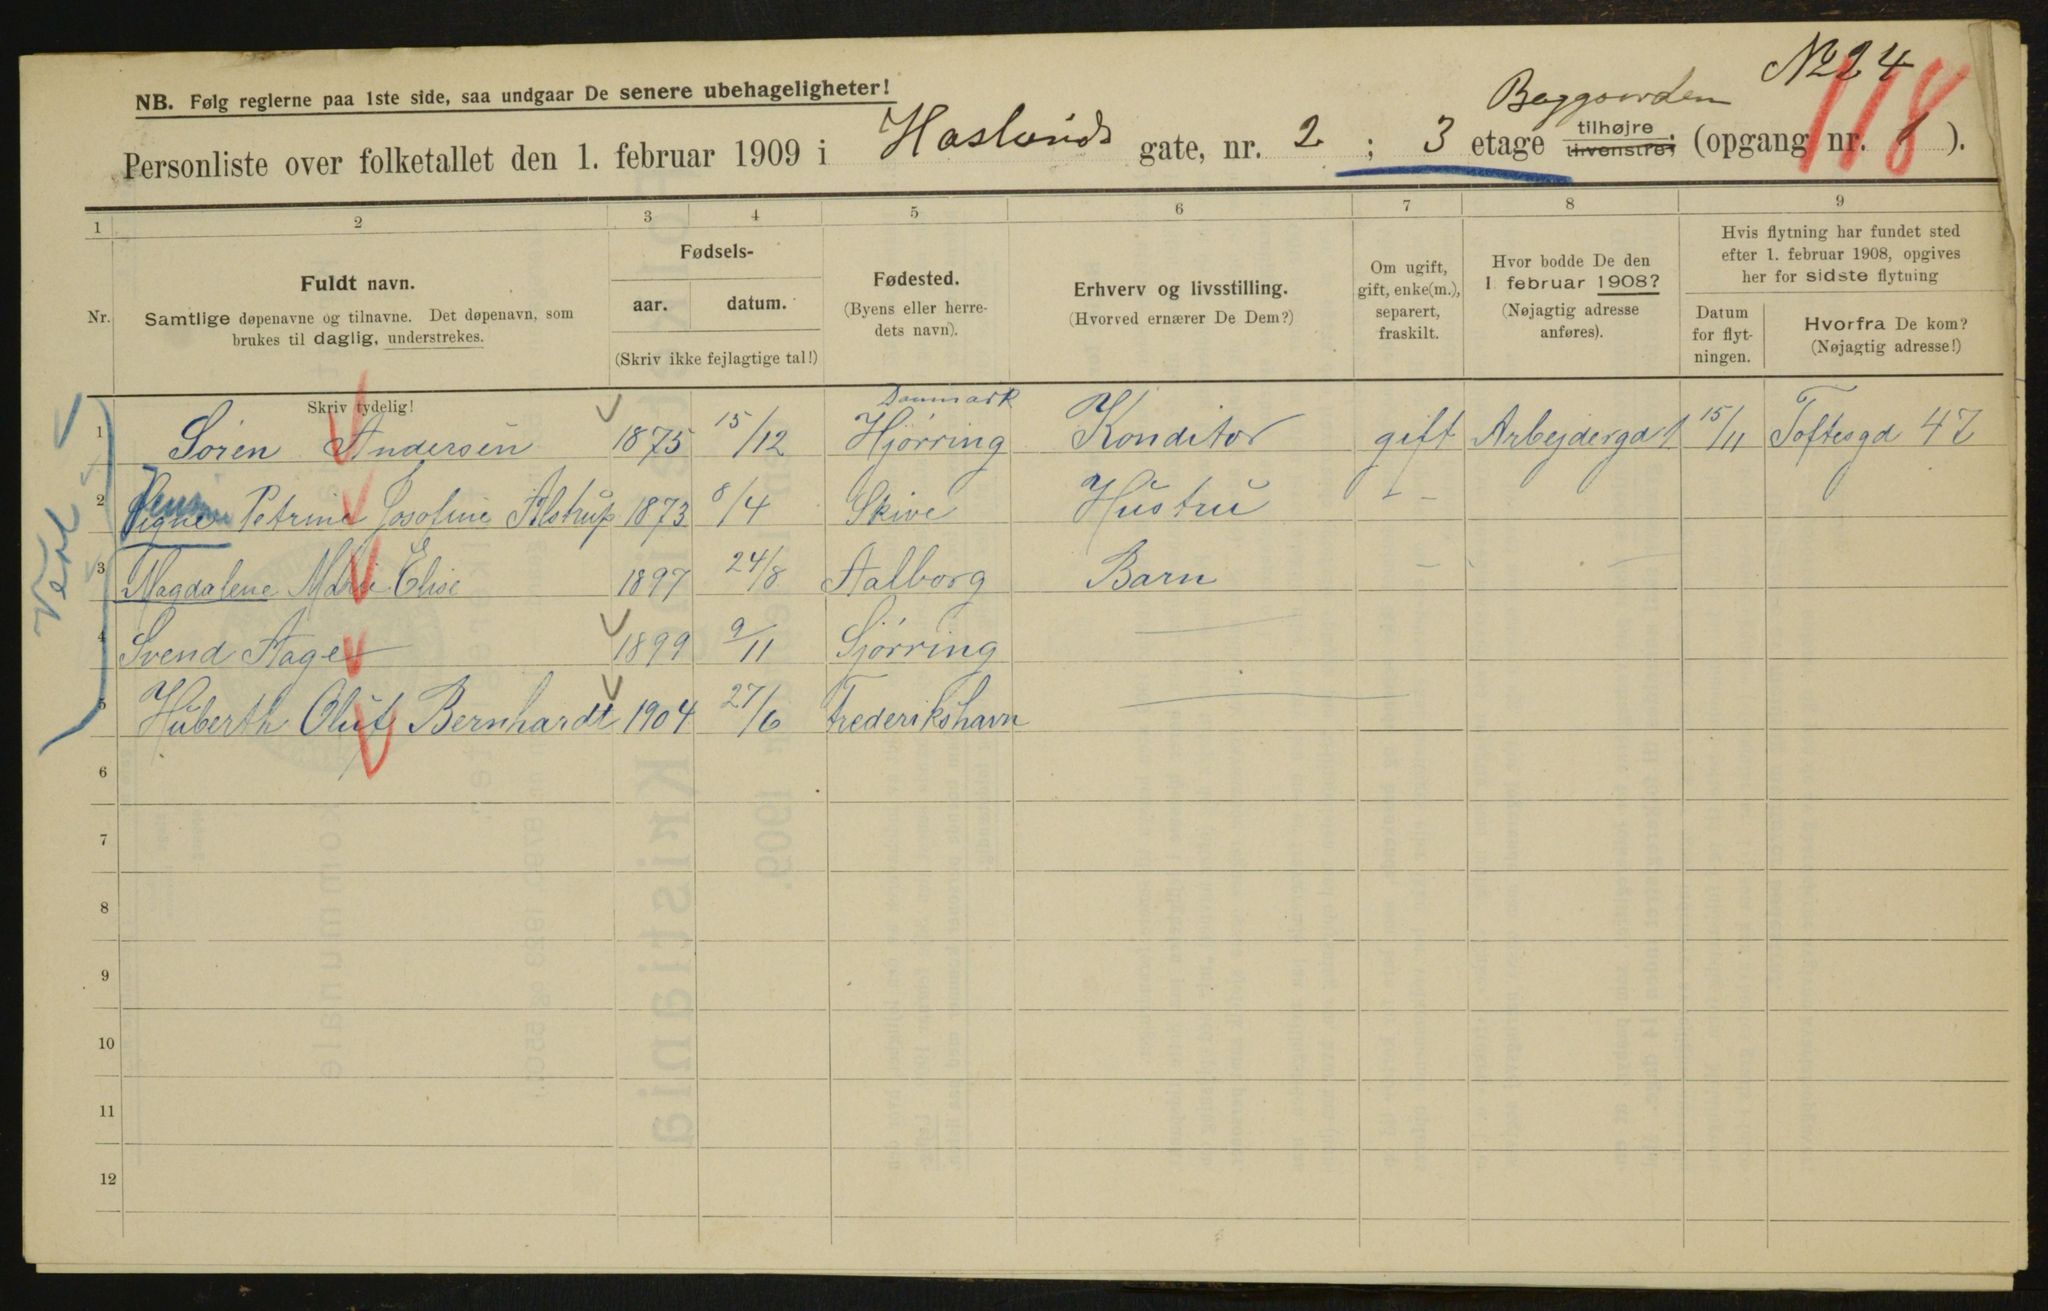 No 24
118
Baggaarden
NB. Følg reglerne paa 1ste side, saa undgaar De senere ubehageligheter!
Personliste over folketallet den 1. februar 1909 i Haslunds gate, nr. 2 ; 3 etage tilhøjre, tilvenstre, (opgang nr. 1 ).
1 2 3 4 5 6 7 8 9
Nr.
Fuldt navn.
Samtlige døpenavne og tilnavne. Det døpenavn, som
brukes til daglig, understrekes.
Skriv tydelig!
Fødsels-
aar. datum.
(Skriv ikke fejlagtige tal!)
Fødested.
(Byens eller herre-
dets navn).
Erhverv og livsstilling.
(Hvorved ernærer De Dem?)
Om ugift,
gift, enke(m.),
separert,
fraskilt.
Hvor bodde De den
1. februar 1908?
(Nøjagtig adresse
anføres).
Hvis flytning har fundet sted
efter 1. februar 1908, opgives
her for sidste flytning
Datum
for flyt-
ningen.
Hvorfra De kom?
(Nøjagtig adresse!)
Danmark
1 Søren Andersen 1875 15/12 Hjørring Konditor gift Arbejdergd 1 15/11 Toftesgd 47
2 Signe Petrine Josoline Alstrup 1873 8/4 Skive Hustru - -
3 Magdalene Marie Elise 1897 24/8 Aalborg Barn - - -
4 Svend Aage 1899 9/11 Sjørring —
5 Huberth Oluf Bernhardt 1904 27/6 Frederikshavn —
6
7
8
9
10
11
12